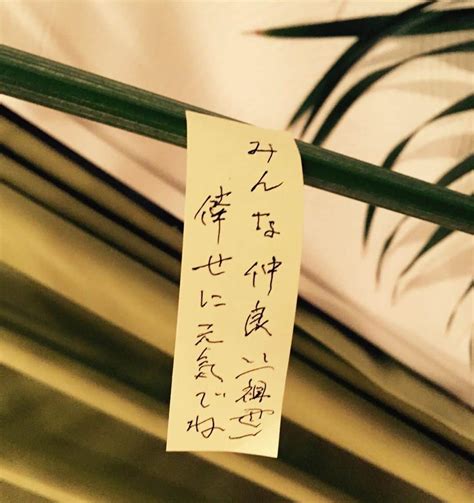 みんな仲良い(祖母)
倖せに元気でね